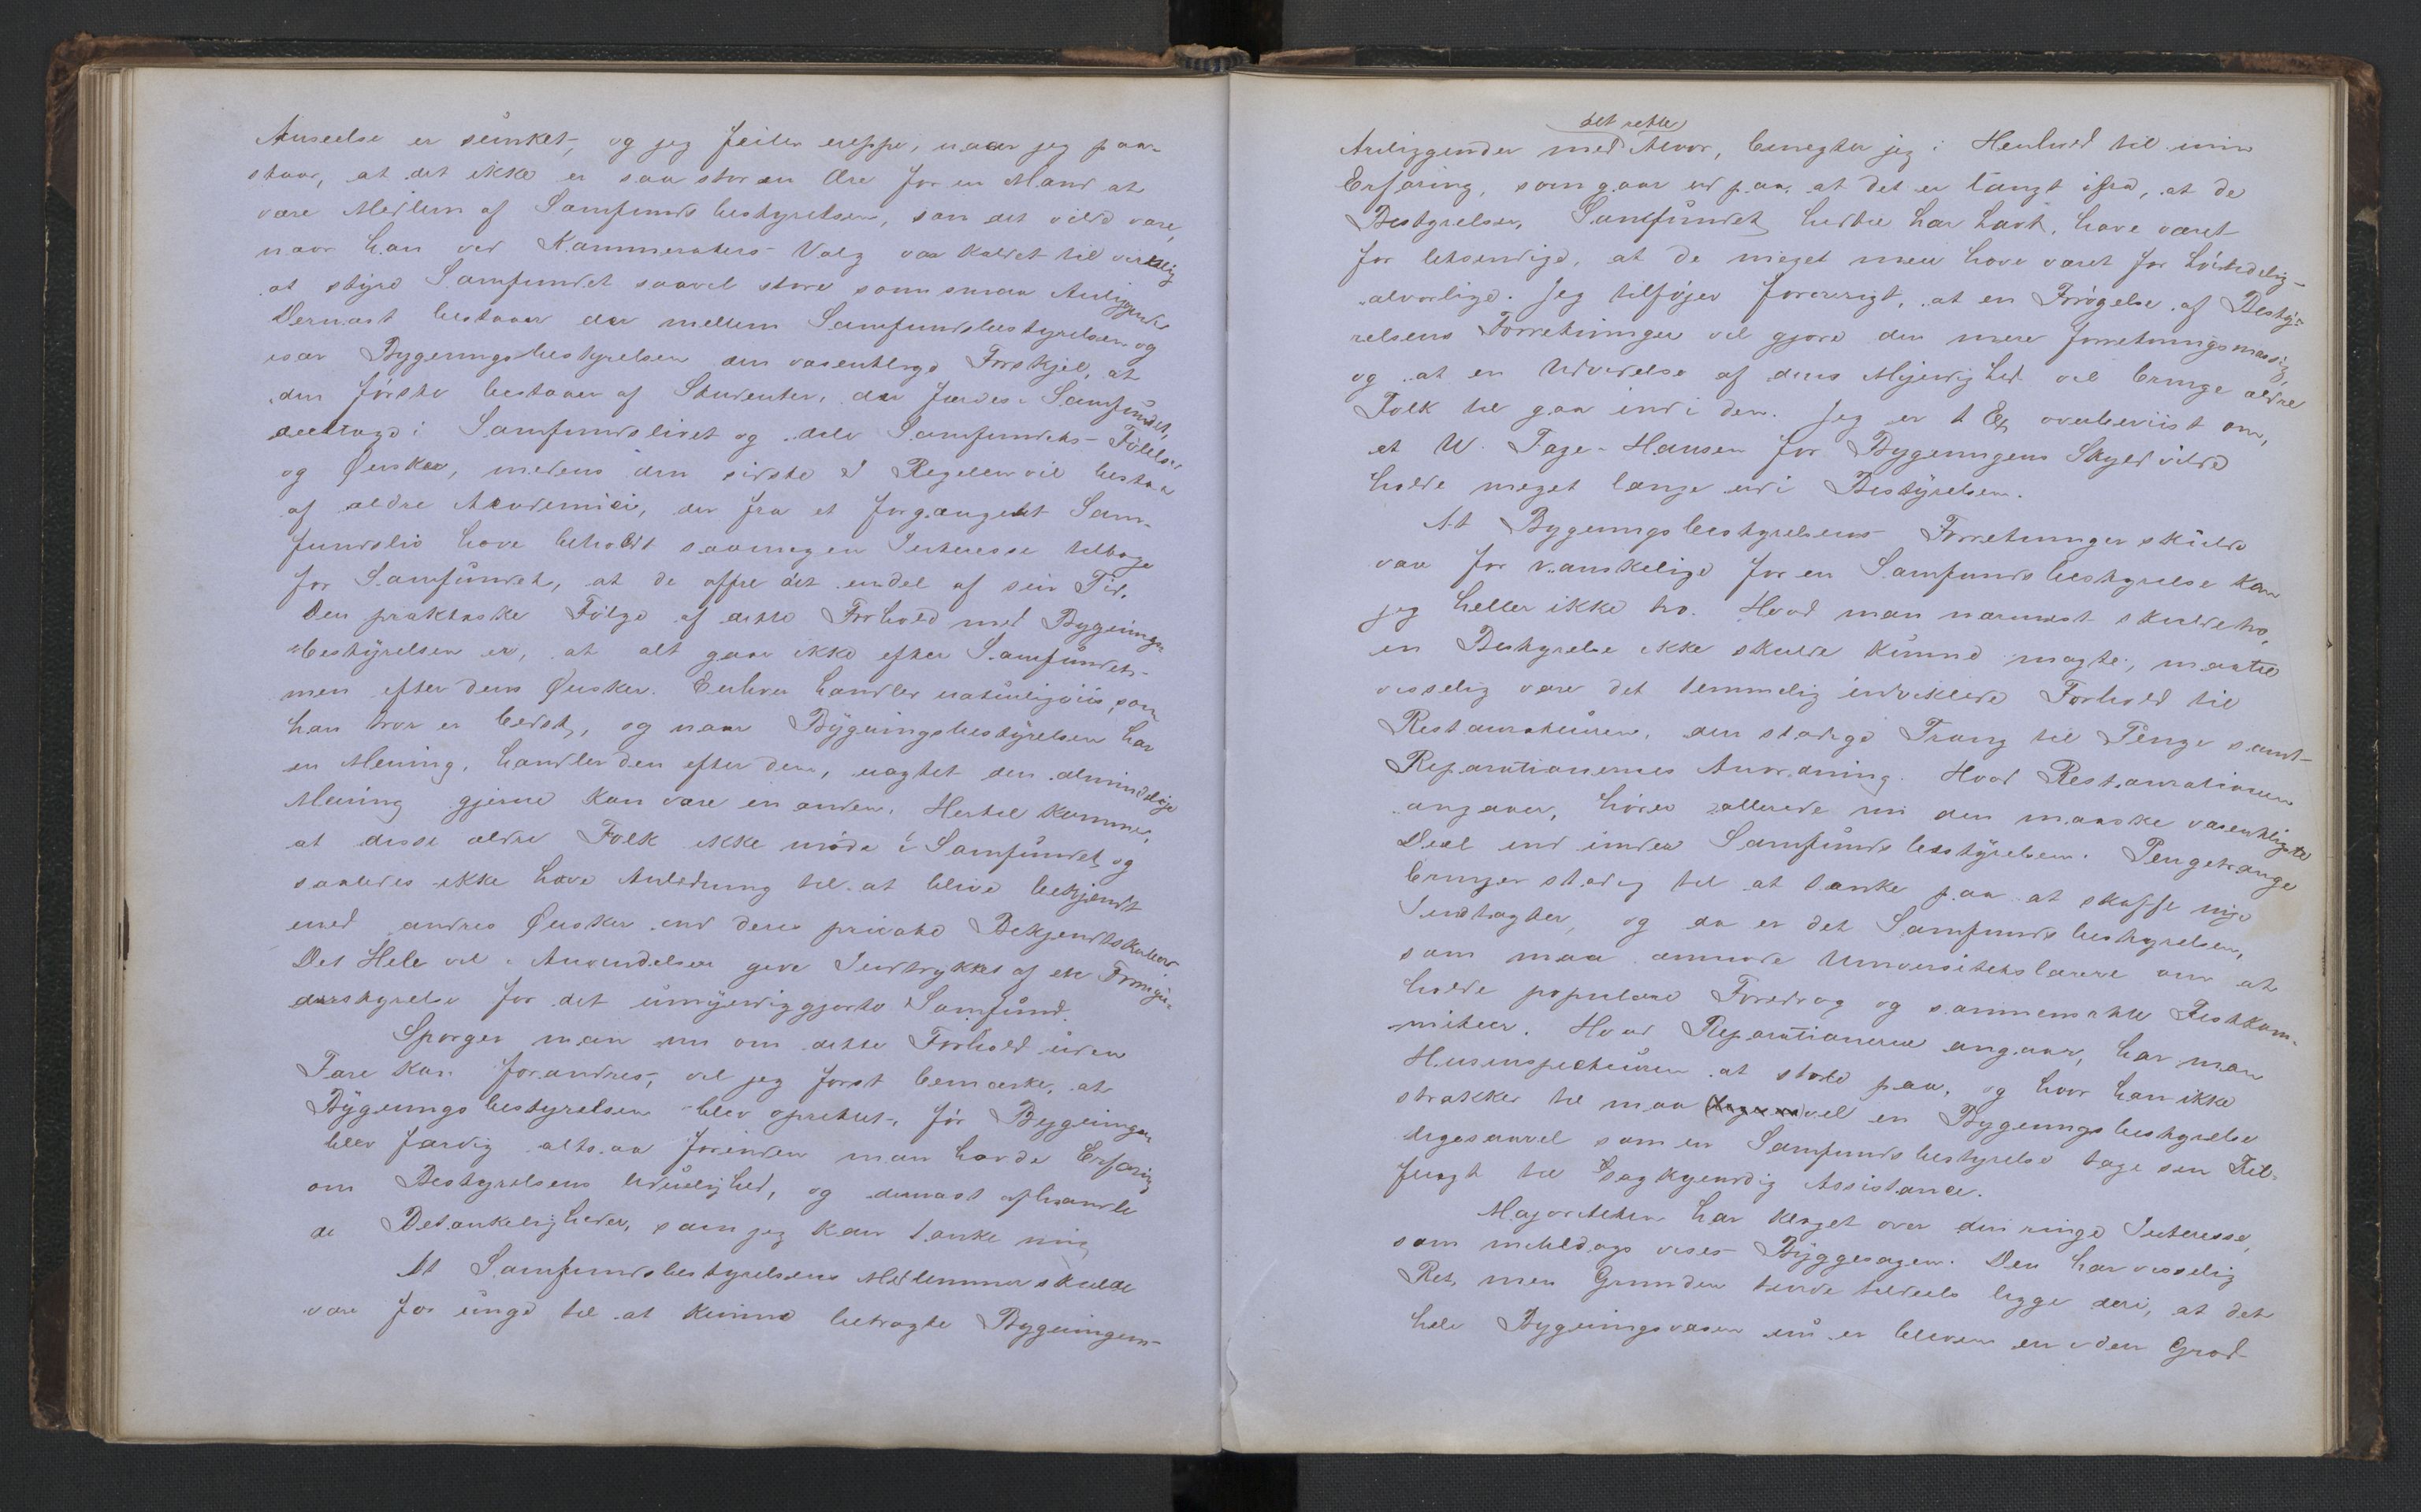 Anseelse er sunket, og jeg feiler neppe, naar jeg paa-
staar, at det ikke er saa stor en Ære for en Mand at
være Medlem af Samfundsbestyrelsen, som det vilde være,
naar han ved Kammeraters Valg var kaldet til virkelig
at styre Samfundet saavel store som smaa Anliggender
Dernæst bestaaer der mellem Samfundsbestyrelsen og
især Bygningsbestyrelsen den væsentlige Forskjel, at
den første bestaaer af Studenter, der færdes i Samfundet,
deeltage i Samfundslivet og dele Samfundets Følelser
og Ønsker, medens den sidste I Regelen vil bestaa
af ældre Academici, der fra et forgangent Sam-
fundsliv have beholdt saamegen Interesse tilbage
for Samfundet, at de offre det endel af sin Tid.
Den praktiske Følge af dette Forhold med Bygnings-
bestyrelsen er, at alt gaar ikke efter Samfundets
men efter dens Ønsker. Enhver handler naturligviis, som
han tror er bedst, og naar Bygningsbestyrelsen har
en Mening, handler den efter den, uagtet den almindelige
Mening gjerne kan være en anden. Hertil kommer,
at disse ældre Folk ikke møde i Samfundet og
saaledes ikke have Anledning til at blive bekjendt
med andres Ønsker end deres private Bekjendtskabers
Det Hele vil i Anvendelsen give Indtrykket af en Formyn-
derstyrelse for det umyndiggjorte Samfund.
Spørger man nu om dette Forhold uden
Fare kan forandres, vil jeg først bemærke, at
Bygningsbestyrelsen blev oprettet, før Bygningen
blev færdig altsaa forinden man havde Erfaring
om Bestyrelsens Uduelighed, og dernæst afhandle
de Betænkeligheder, som jeg kan tænke mig
At Samfundsbestyrelsens Medlemmer skulde
være for unge til at kunne betragte Bygningens
det rette
Anliggender med Alvor, benegter jeg i Henhold til min
Erfaring, som gaar ud paa, at det er langt ifra, at de
Bestyrelser, Samfundet hidtil har havt, have været
for letsindige, at de meget mere have været for høitidelig-
alvorlige. Jeg tilføjer forøvrigt, at en Forøgelse af Besty-
relsens Forretninger vil gjøre den mere forretningsmæssig,
og at en Udvidelse af dens Myndighed vil bringe ældre
Folk til gaa ind i den. Jeg er t Ex overbeviist om,
at W. Tage-Hansen for Bygningens Skyld vilde
holde meget længe ud i Bestyrelsen.
At Bygningsbestyrelsens Forretninger skulde
være for vanskelige for en Samfundsbestyrelse kan
jeg heller ikke tro. Hvad man nærmest skulde tro,
en Bestyrelse ikke skulde kunne magte, maatte
visselig være det temmelig indviklede Forhold til
Restaurateuren, den stadige Trang til Penge samt
Reparationernes Anordning. Hvad Restaurationen
angaaer, hører allerede nu den maaske væsentligste
Deel ind under Samfundsbestyrelsen. Pengetrange
bringer stadig til at tænke paa at skaffe nye
Indtægter, og da er det Samfundsbestyrelsen,
som maa anmode Universitetslærere om at
holde populære Foredrag og sammensætte Festkom-
miteer. Hvad Reparationerne angaar, har man
Husinspecteuren at stole paa, og hvor han ikke
strækker til maa vel en Bygningsbestyrelse
ligesaavel som en Samfundsbestyrelse tage sin Til-
flugt til sagkyndig Assistance.
Majoriteten har klaget over den ringe Interesse,
som nutildags vises Byggesagen. Den har visselig
Ret, men Grunden turde tildeels ligge deri, at det
hele Bygningsvæsen nu er bleven en i den Grad